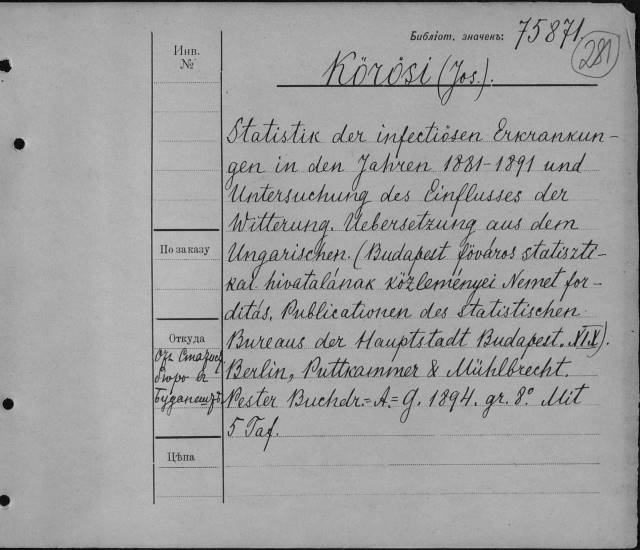 Библіот. значекъ: 75871.
281
Инв. №
Körösi (Jos.).
Statistik der infectiösen Erkrankun-
gen in den Jahren 1881-1891 und
Untersuchung des Einflusses der
Witterung. Uebersetzung aus dem
Ungarischen. (Budapest föváros statiszti-
kai hivatalának közleményei Nemet for-
ditás. Publicationen des Statistischen
Bureaus der Hauptstadt Budapest. XIX).
Berlin, Puttkammer & Mühlbrecht.
Pester Buchdr.=A.=G. 1894. gr. 8° Mit
5 Taf.
По заказу
Откуда
Бюро въ
Будапештѣ
Цѣна